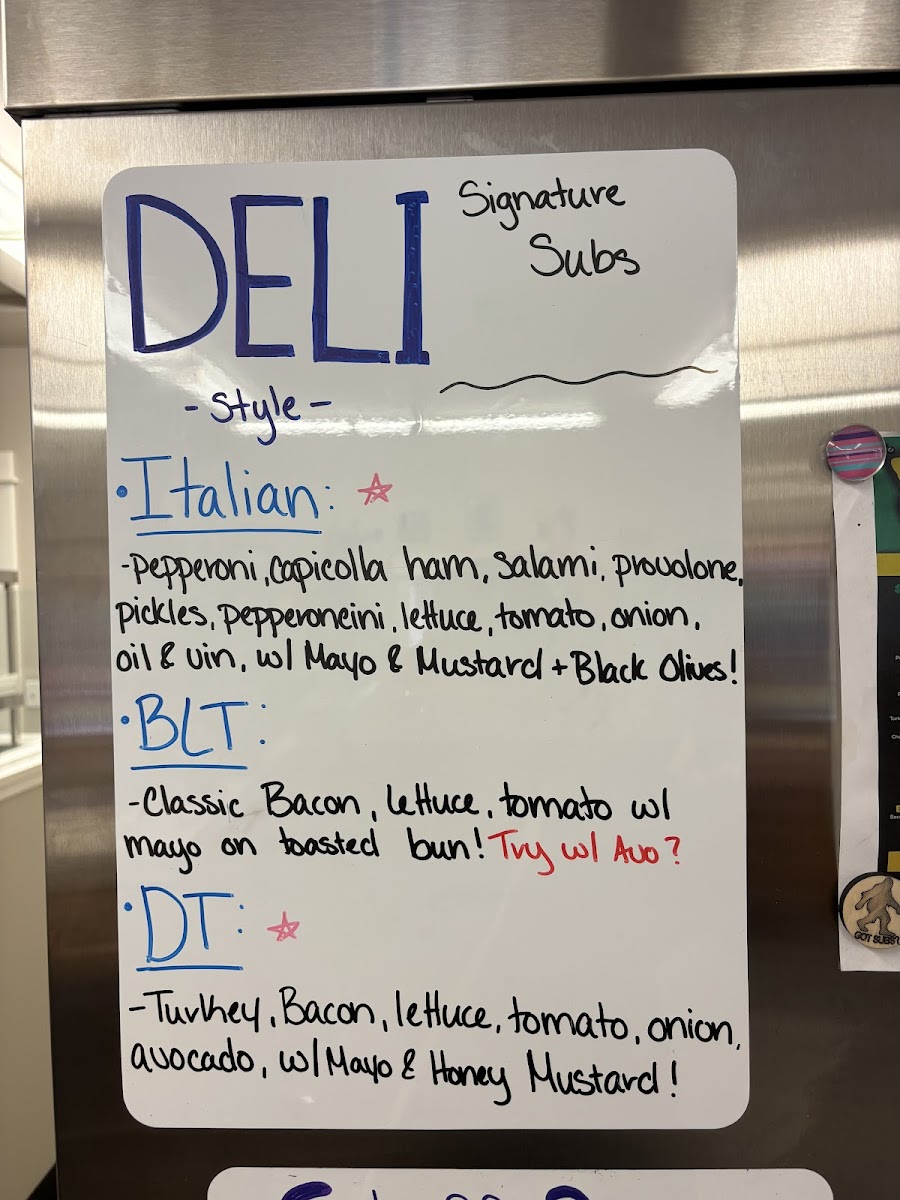 DELI
Signature
Subs
- Style -
• Italian: ☆
-Pepperoni, Capicolla ham, Salami, Provolone,
pickles, pepperoneini, lettuce, tomato, onion,
oil & vin, w/ Mayo & Mustard + Black Olives!
• BLT:
-Classic Bacon, lettuce, tomato w/
mayo on toasted bun! Try w/ Avo?
• DT: ☆
-Turkey, Bacon, lettuce, tomato, onion,
avocado, w/ Mayo & Honey Mustard!
GOT SUBS